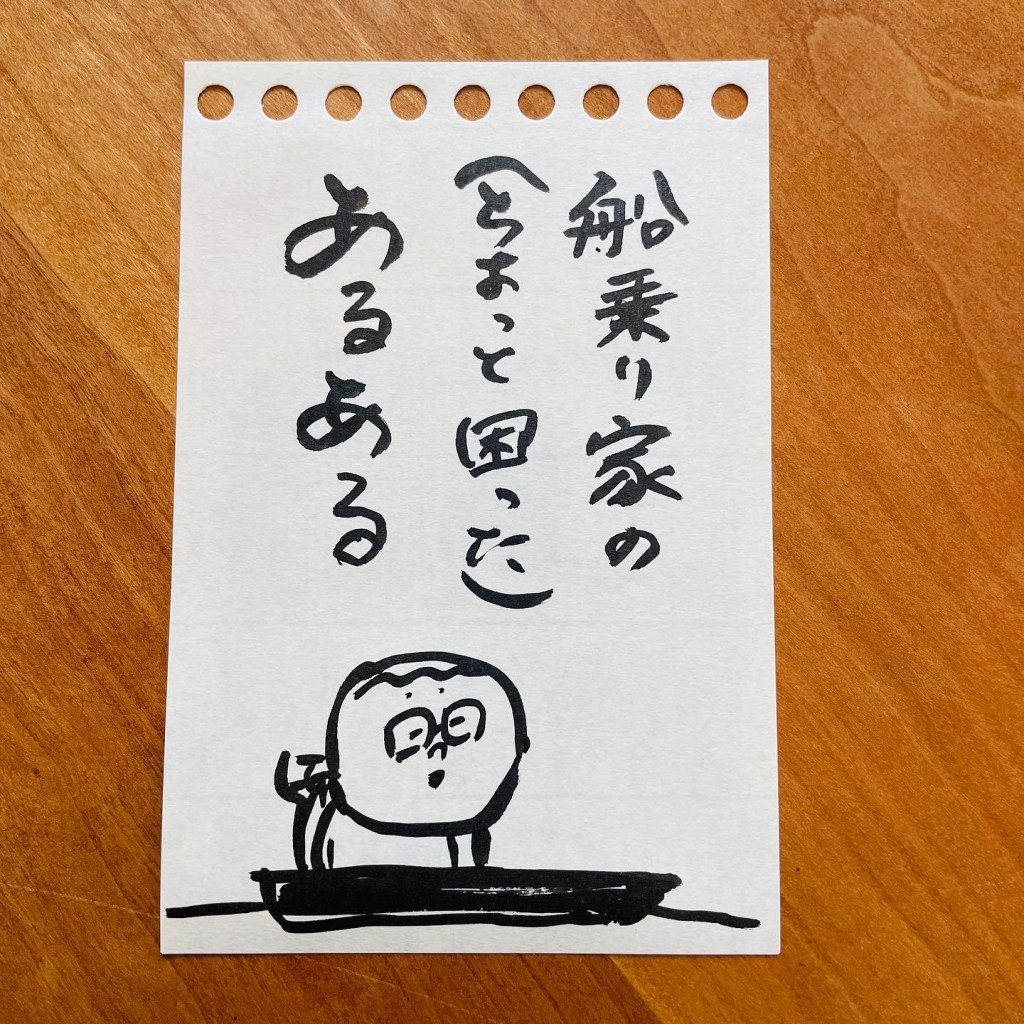 船乗り家の
(ちょっと困った)
あるある